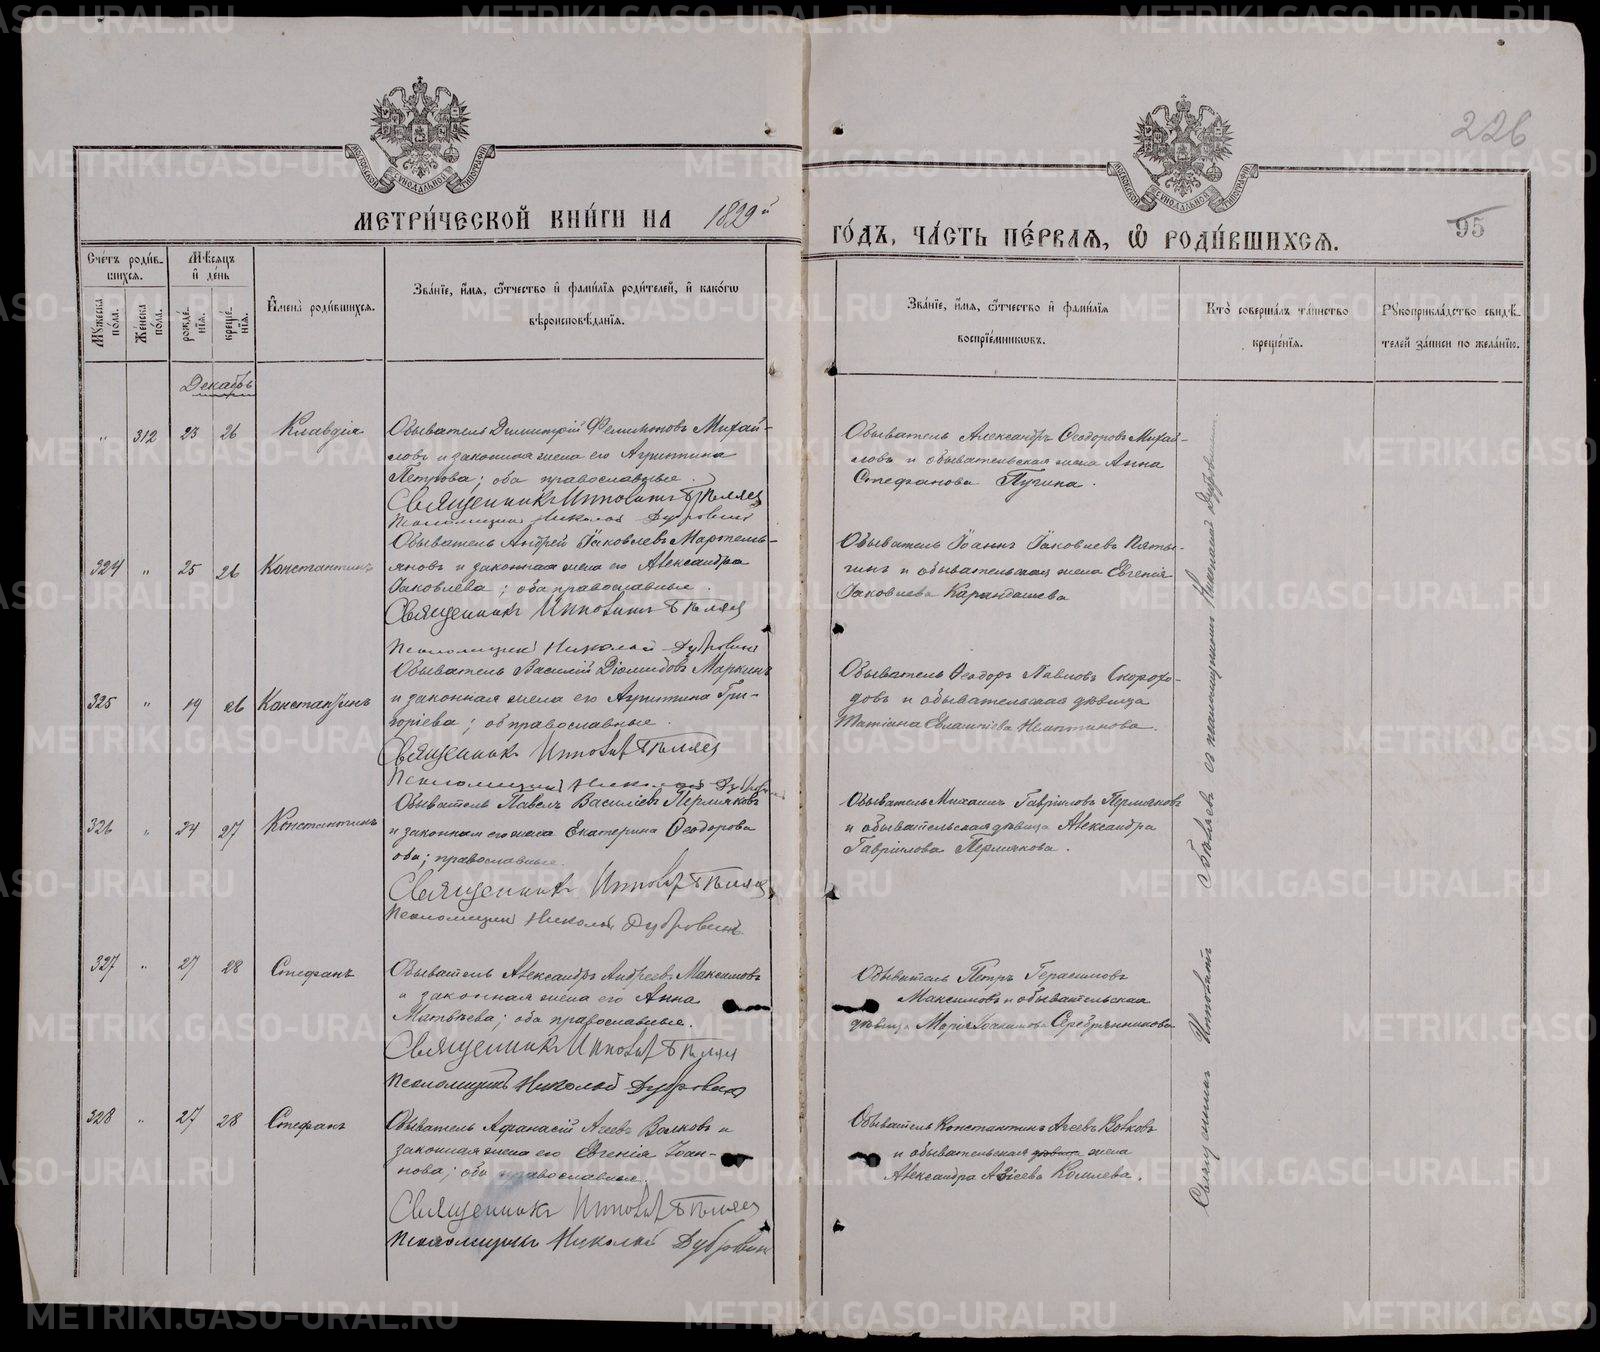 226
МЕТРИ́ЧЕСКОЙ КНИ́ГИ НА 1899й
ГО́ДЪ, ЧА́СТЬ ПЕ́РВАЯ, Ѽ РОДИ́ВШИХСЯ.
95
Сче́тъ роди́в-
шихся.
Мѣсяцъ
и҆ де́нь
Му́жеска по́ла.
Же́нска по́ла.
рожде́-нїя.
креще́-нїя.
И҆мена̀ роди́вшихся.
Зва́нїе, и҆́мя, ѻ҆́тчество и҆ фами́лїя роди́телей, и҆ како́гѡ
вѣроисповѣ́данїя.
Зва́нїе, и҆́мя, ѻ҆́тчество и҆ фами́лїя
воспрїе́мникѡвъ.
Кто̀ соверша́лъ та́инство
креще́нїя.
Рꙋкоприкла́дство свидѣ́-
телей за́писи по жела́нїю.
Декабрь
„ 312 23 26 Клавдія
Обыватель Димитрій Михай-
ловъ и законная жена его Агриппина
Петрова; оба православные.
Священникъ Ипполитъ Бѣляев
Псаломщикъ Николай Дубровинъ
Обыватель Александръ Ѳеодоровъ Михай-
ловъ и обывательская жена Анна
Стефанова Пугина.
324 „ 25 26 Константинъ
Обыватель Андрей Іаковлевъ Мартемь-
яновъ и законная жена его Александра
Іаковлева; оба православные.
Священникъ Ипполитъ Бѣляев
Псаломщикъ Николай Дубровинъ
Обыватель Іоаннъ Іаковлевъ
и обывательская жена Евгенія
Іаковлева Карандашева
325 „ 19 26 Константинъ
Обыватель Василій Діомидовъ Маркинъ
и законная жена его Агриппина Гри-
горіева; об православные.
Священникъ Ипполит Бѣляев
Псаломщикъ Николай Дубровин
Обыватель Ѳеодоръ Павловъ Скорохо-
довъ и обывательская дѣвица
Татіана
326 „ 24 27 Константинъ
Обыватель Павелъ Василіевъ Пермяковъ
и законная его жена Екатерина Ѳеодорова
оба; православные.
Священникъ Ипполит Бѣляев
Псаломщикъ Николай Дубровинъ
Обыватель Михаилъ Гавріиловъ Пермяковъ
и обывательская дѣвица Александра
Гавріилова Пермякова.
327 „ 27 28 Стефанъ
Обыватель Александръ Андреевъ Максимовъ
и законная жена его Анна
Матвѣева; оба православные.
Священникъ Ипполит Бѣляев
Псаломщикъ Николай Дубровин
Обыватель Петръ Герасимовъ
Максимовъ и обывательская
дѣвица Марія Іоакимова Серебрянникова
328 „ 27 28 Стефанъ
Обыватель Афанасій Агеевъ Волковъ и
законная жена его Евгенія Іоан-
нова; оба православные.
Священникъ Ипполит Бѣляев
Псаломщикъ Николай Дубровин
Обыватель Константинъ Агеевъ Волковъ
и обывательская дѣвица жена
Александра
Священникъ Ипполитъ Бѣляевъ съ псаломщикомъ Николаемъ Дубровинымъ.
METRIKI.GASO-URAL.RU